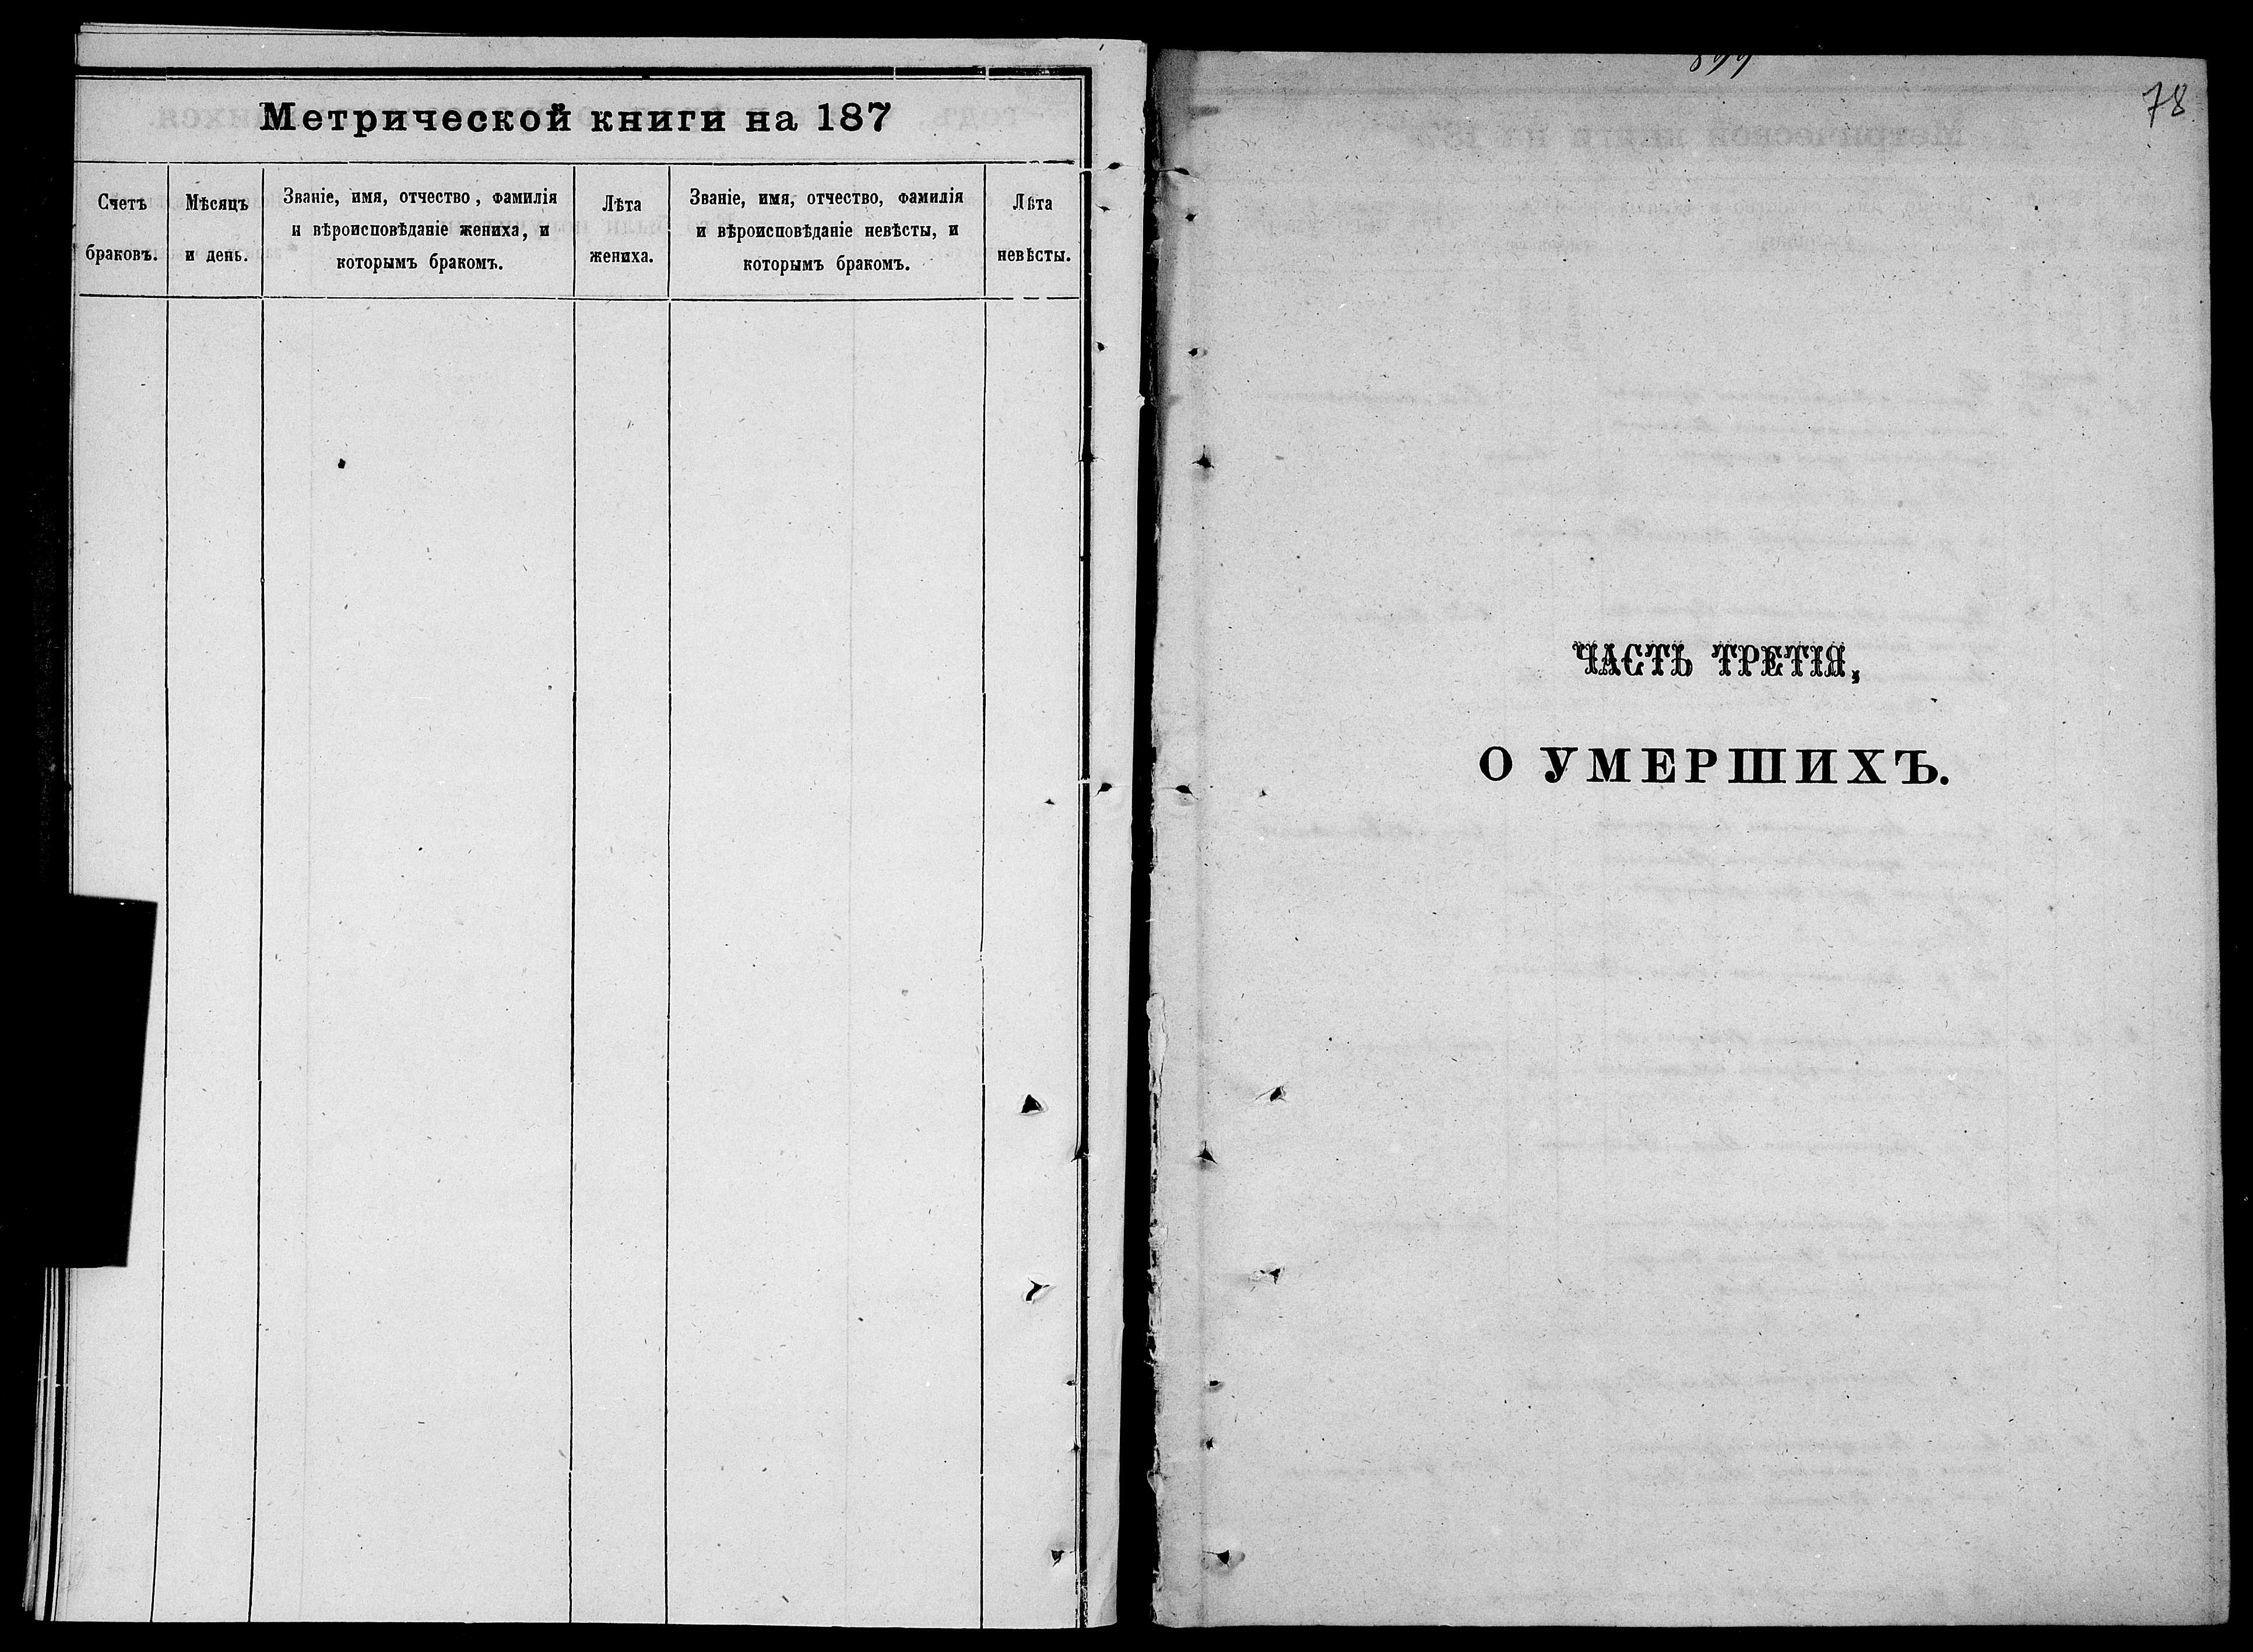 Метрической книги на 187
Счетъ браковъ.
Мѣсяцъ и день.
Званіе, имя, отчество, фамилія
и вѣроисповѣданіе жениха, и
которымъ бракомъ.
Лѣта жениха.
Званіе, имя, отчество, фамилія
и вѣроисповѣданіе невѣсты, и
которымъ бракомъ.
Лѣта невѣсты.
78
ЧАСТЬ ТРЕТІЯ,
О УМЕРШИХЪ.